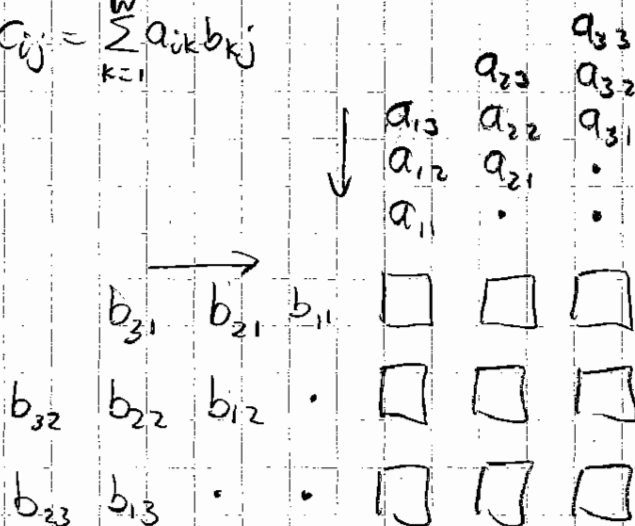 c_{ij} = \sum_{k=1}^{w} a_{ik} b_{kj}
a_{33}
a_{23} a_{32}
a_{13} a_{22} a_{31}
a_{12} a_{21} .
a_{11} . .
b_{31} b_{21} b_{11}
b_{32} b_{22} b_{12} .
b_{23} b_{13} . .